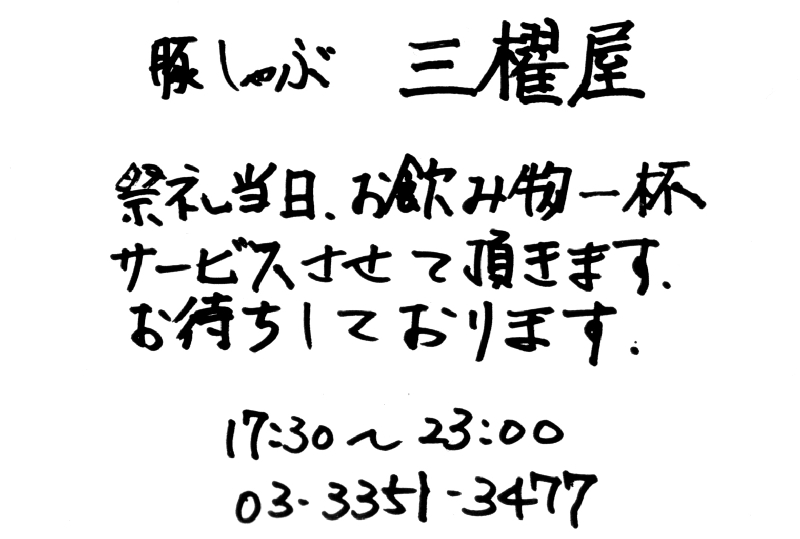 豚しゃぶ 三櫂屋
祭礼当日、お飲み物一杯
サービスさせて頂きます.
お待ちしております.
17:30〜23:00
03-3351-3477